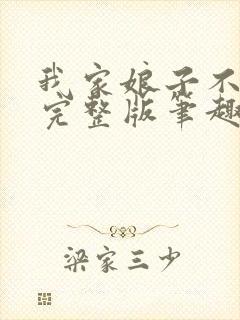 我家娘子不
完整版笔趣
梁家三少